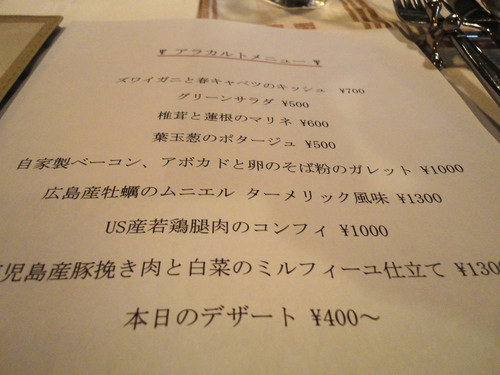 アラカルトメニュー
ズワイガニと春キャベツのキッシュ ¥700
グリーンサラダ ¥500
椎茸と蓮根のマリネ ¥600
葉玉葱のポタージュ ¥500
自家製ベーコン、アボカドと卵のそば粉のガレット ¥1000
広島産牡蠣のムニエル ターメリック風味 ¥1300
US産若鶏腿肉のコンフィ ¥1000
児島産豚挽き肉と白菜のミルフィーユ仕立て ¥130
本日のデザート ¥400〜